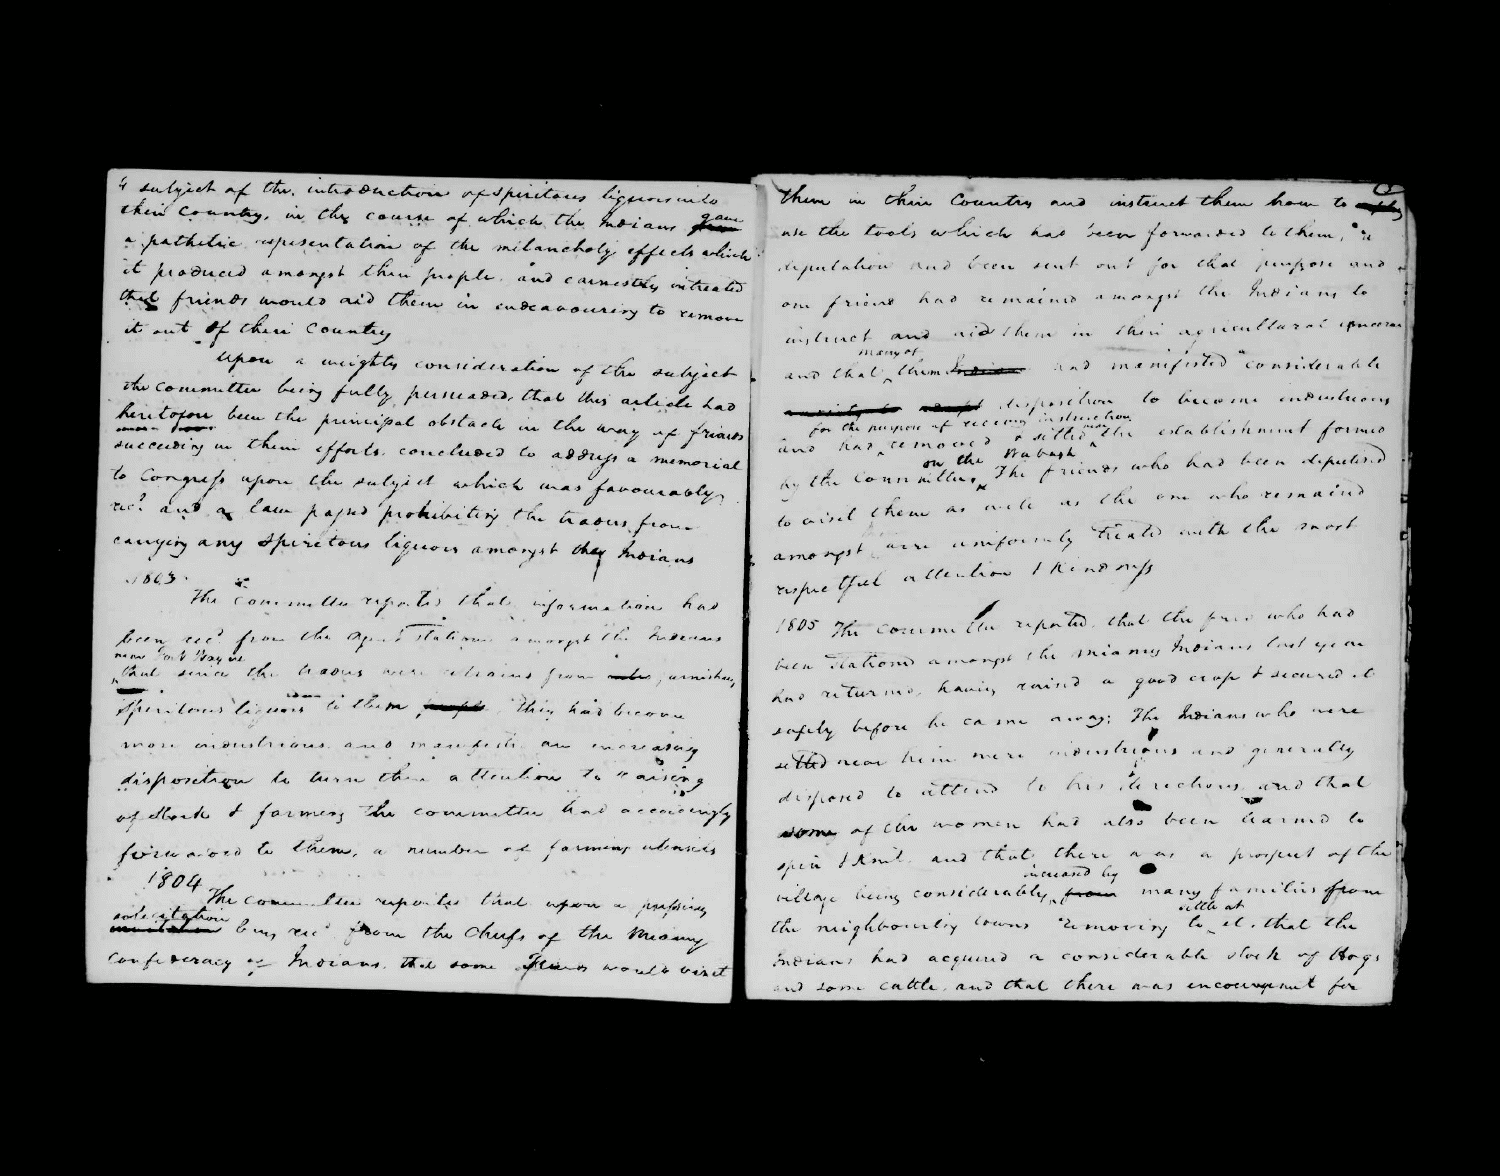 " subject of the introduction of Spiritous liquors into
their Country, in the course of which the Indians gave
a pathetic representation of the melancholy effects which
it produced amongst their people, and earnestly intreated
that friends would aid them in endeavouring to remove
it out of their Country
Upon a weighty consideration of the subject
the Committee being fully persuaded, that this article had
heretofore been the principal obstacle in the way of friends
succeeding in their efforts, concluded to address a memorial
to Congress upon the subject which was favourably
recd and a law passed prohibiting the traders from
carrying any Spiritous liquors amongst the Indians
1803
The committee reported that information had
been recd from the Agent stationed amongst the Indians
near Fort Wayne
that since the traders were restrained from furnishing
Spiritous liquors to them They had become
more industrious and manifested an increasing
disposition to turn their attention to raising
of stock & farming the committee had accordingly
forwarded to them, a number of farming utensils
1804
The committee reported that upon a pressing
solicitation
being recd from the Chiefs of the Miamy
Confederacy of Indians, that some Friends would visit
them in their Country and instruct them how to
use the tools which had been forwarded to them, a
deputation had been sent out for that purpose and
one friend had remained amongst the Indians to
instruct and aid them in their agricultural concerns
many of
and that them had manifested considerable
disposition to become industrious
for the purpose of receiving instruction
and had removed & settled near the establishment formed
on the Wabash
by the Committee, The friends who had been deputised
to visit them as well as the one who remained
amongst were uniformly treated with the most
respectful attention & kindness
1805 The committee reported, that the friend who had
been stationed amongst the miamy Indians last year
had returned, having raised a good crop & secured it
safely before he came away; The Indians who were
settled near him were industrious and generally
disposed to attend to his directions, and that
some of the women had also been learned to
spin & Knit, and that there was a prospect of the
increased by
village being considerably many families from
settle at
the neighbouring towns removing to it, that the
Indians had acquired a considerable stock of Hogs
and some cattle, and that there was encouragement for